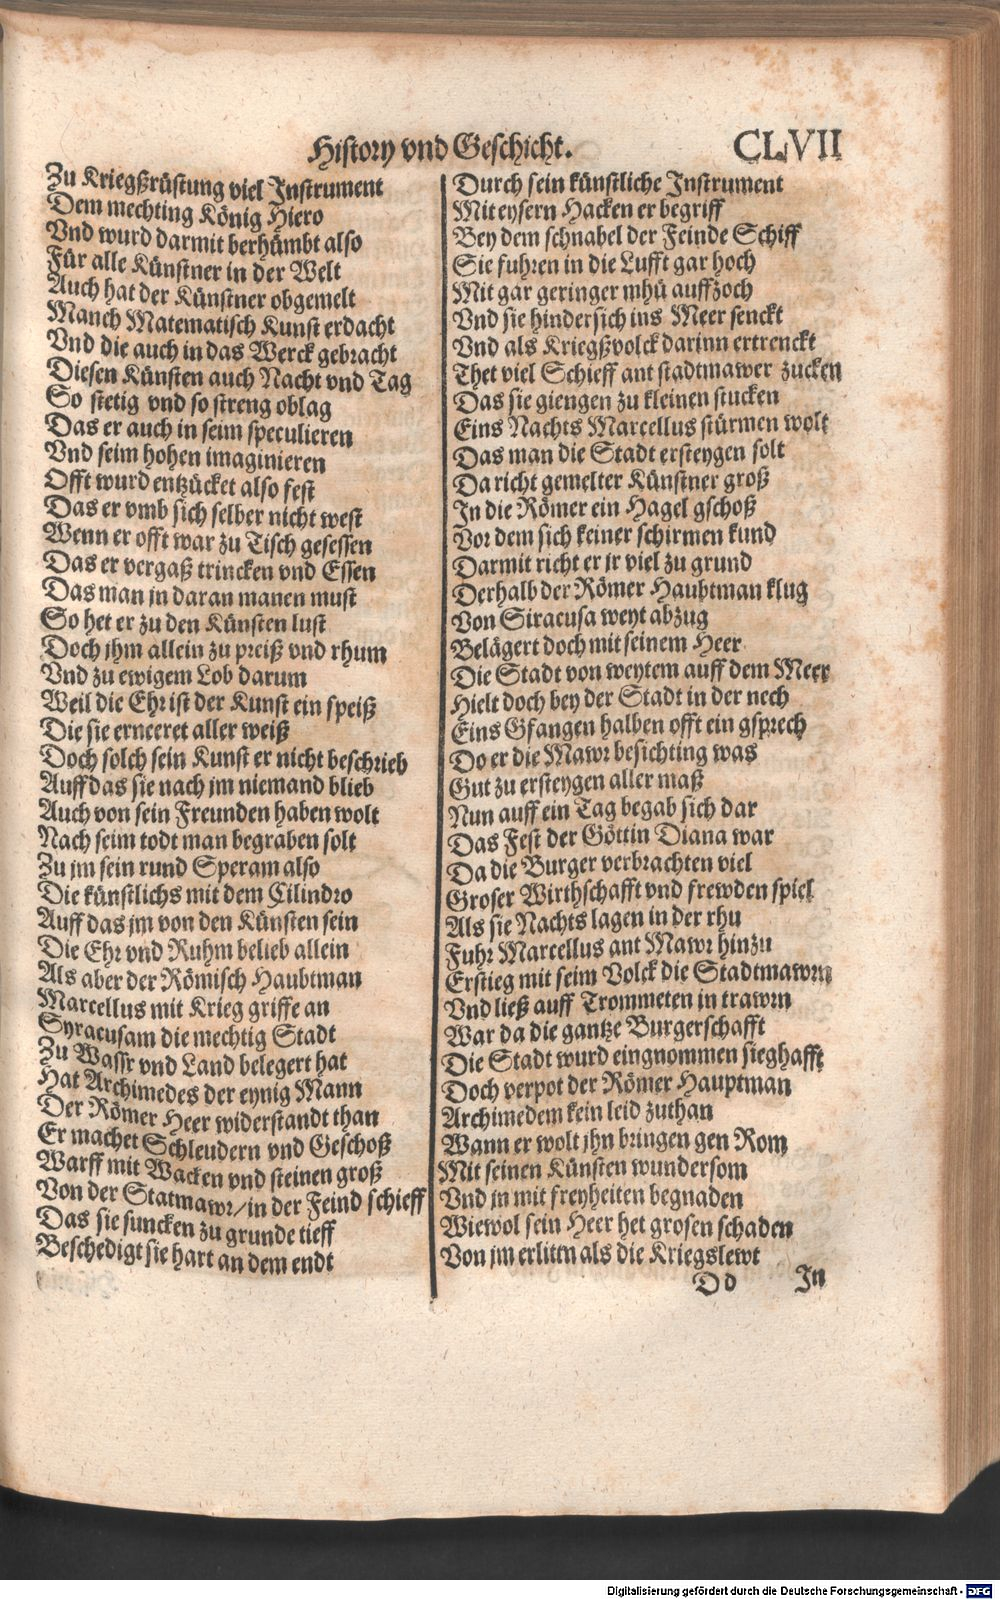 History vnd Geschicht.
CLVII
Zu Kriegßrüstung viel Instrument
Dem mechting König Hiero
Vnd wurd darmit berhümbt also
Für alle Künstner in der Welt
Auch hat der Künstner obgemelt
Manch Matematisch Kunst erdacht
Vnd die auch in das Werck gebracht
Diesen Künsten auch Nacht vnd Tag
So stetig vnd so streng oblag
Das er auch in seim speculieren
Vnd seim hohen imaginieren
Offt wurd entzücket also fest
Das er vmb sich selber nicht west
Wenn er offt war zu Tisch gesessen
Das er vergaß trincken vnd Essen
Das man jn daran manen must
So het er zu den Künsten lust
Doch jhm allein zu preiß vnd rhum
Vnd zu ewigem Lob darum
Weil die Ehr ist der Kunst ein speiß
Die sie erneeret aller weiß
Doch solch sein Kunst er nicht beschrieb
Auff das sie nach jm niemand blieb
Auch von sein Freunden haben wolt
Nach seim todt man begraben solt
Zu jm sein rund Speram also
Die künstlichs mit dem Cilindro
Auff das jm von den Künsten sein
Die Ehr vnd Ruhm belieb allein
Als aber der Römisch Haubtman
Marcellus mit Krieg griffe an
Syracusam die mechtig Stadt
Zu Wassr vnd Land belegert hat
Hat Archimedes der eynig Mann
Der Römer Heer widerstandt than
Er machet Schleudern vnd Geschoß
Warff mit Wacken vnd steinen groß
Von der Statmawr/in der Feind schieff
Das sie suncken zu grunde tieff
Beschedigt sie hart an dem endt
Durch sein künstliche Instrument
Mit eysern Hacken er begriff
Bey dem schnabel der Feinde Schiff
Sie fuhren in die Lufft gar hoch
Mit gar geringer mhü auffzoch
Vnd sie hindersich ins Meer senckt
Vnd als Kriegßvolck darinn ertrenckt
Thet viel Schieff ant stadtmawer zucken
Das sie giengen zu kleinen stucken
Eins Nachts Marcellus stürmen wolt
Das man die Stadt ersteygen solt
Da richt gemelter Künstner groß
In die Römer ein Hagel gschoß
Vor dem sich keiner schirmen kund
Darmit richt er jr viel zu grund
Derhalb der Römer Haubtman klug
Von Siracusa weyt abzug
Belägert doch mit seinem Heer
Die Stadt von weytem auff dem Meer
Hielt doch bey der Stadt in der nech
Eins Gfangen halben offt ein gsprech
Do er die Mawr besichting was
Gut zu ersteygen aller maß
Nun auff ein Tag begab sich dar
Das Fest der Göttin Diana war
Da die Burger verbrachten viel
Groser Wirthschafft vnd frewden spiel
Als sie Nachts lagen in der rhu
Fuhr Marcellus ant Mawr hinzu
Erstieg mit seim Volck die Stadtmawrn
Vnd ließ auff Trommeten in trawrn
War da die gantze Burgerschafft
Die Stadt wurd eingnommen sieghafft
Doch verpot der Römer Hauptman
Archimedem kein leid zuthan
Wann er wolt jhn bringen gen Rom
Mit seinen Künsten wundersom
Vnd jn mit freyheiten begnaden
Wiewol sein Heer het grosen schaden
Von jm erlittn als die Kriegslewt
Dd
In
Digitalisierung gefördert durch die Deutsche Forschungsgemeinschaft - DFG